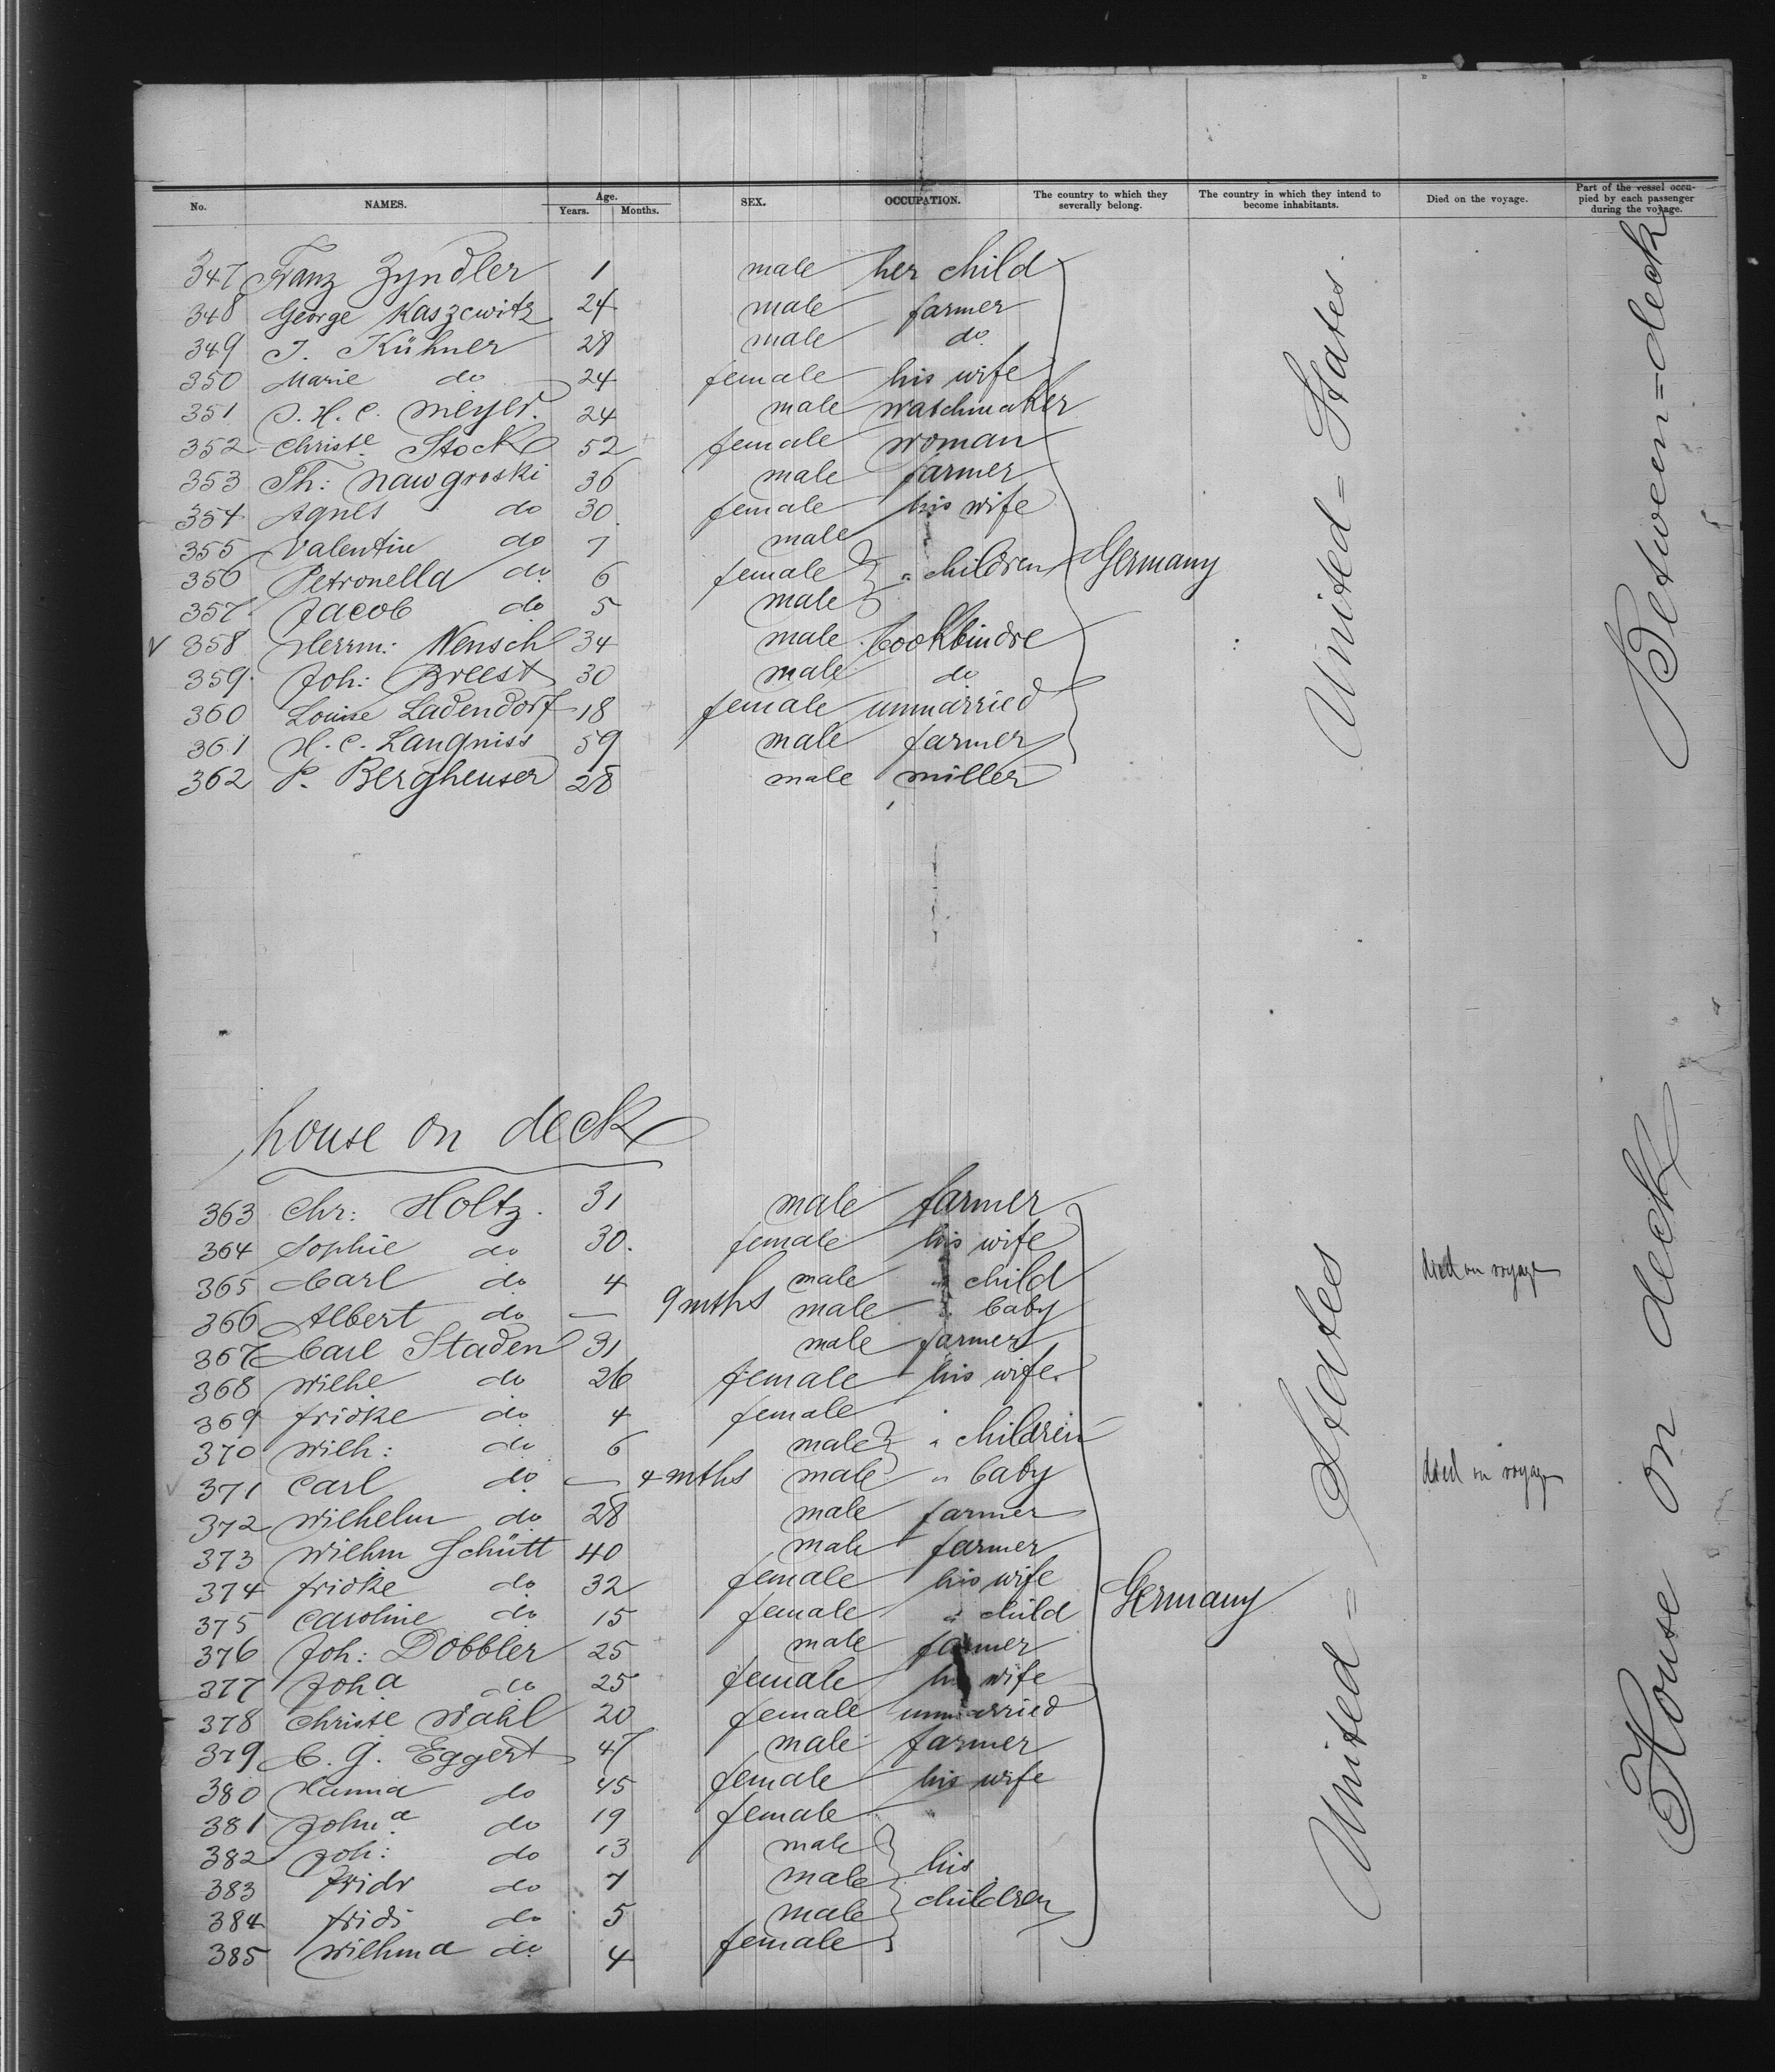 No. NAMES. Age. Years. Months. SEX. OCCUPATION. The country to which they severally belong. The country in which they intend to become inhabitants. Died on the voyage. Part of the vessel occupied by each passenger during the voyage.
347 Franz Zyndler 1 male her child
348 George Kaszewitz 24 male farmer
349 J. Kühner 28 male do
350 Marie do 24 female his wife
351 J. H. C. Meyer. 24 male watchmaker
352 Christe Stock 52 female woman
353 Th: Nawgroski 36 male farmer
354 Agnes do 30 female his wife
355 Valentin do 7 male
356 Petronella do 6 female " children Germany
357 Jacob do 5 male
358 Herrm: Wensch 34 male bookbindre
359 Joh: Breest 30 male do
360 Louise Ladendorf 18 female unmarried
361 H. C. Langniss 59 male farmer
362 P. Bergheuser 28 male miller
United = States.
Between=deck
house on deck
363 Chr: Holtz. 31 male farmer
364 Sophie do 30. female his wife
365 Carl do 4 male " child died on voyage
366 Albert do — 9 mths male " baby
367 Carl Staden 31 male farmer
368 Wilhe do 26 female his wife
369 Fridke do 4 female
370 Wilh: do 6 male " children
371 Carl do — 4 mths male " baby died on voyage
372 Wilhelm do 28 male farmer
373 Wilhm Schütt 40 male farmer
374 Fridke do 32 female his wife
375 Caroline do 15 female " child Germany
376 Joh: Dobbler 25 male farmer
377 Joha do 25 female his wife
378 Christe Wahl 20 female unmarried
379 C. G. Eggert 47 male farmer
380 Hanna do 45 female his wife
381 Johna do 19 female
382 Joh: do 13 male
383 Fridr do 7 male his
384 Fridr do 5 male children
385 Wilhma do 4 female
United = States
House on deck